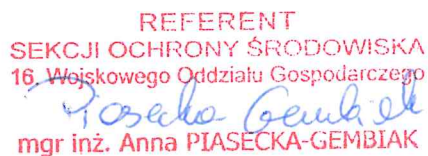 REFERENT
SEKCJI OCHRONY ŚRODOWISKA
16. Wojskowego Oddziału Gospodarczego
Piasecka-Gembiak
mgr inż. Anna PIASECKA-GEMBIAK